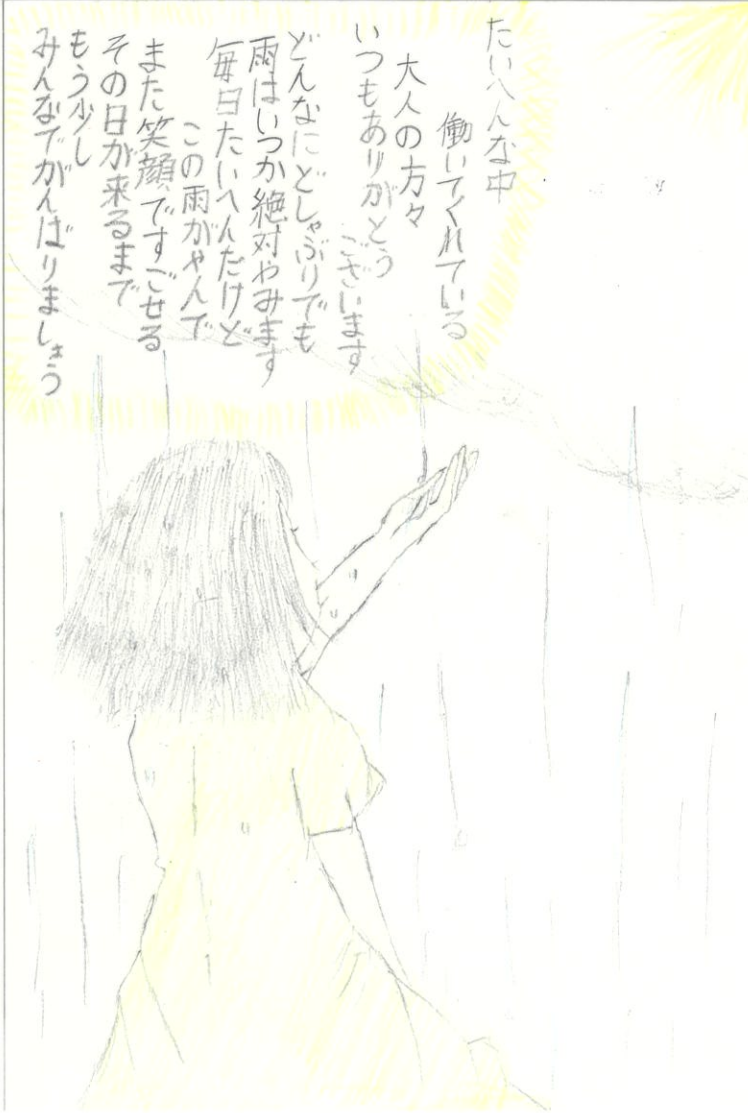 たいへんな中
働いてくれている
大人の方々
いつもありがとう
ございます
どんなにどしゃぶりでも
雨はいつか絶対やみます
毎日たいへんだけど
この雨がやんで
また笑顔ですごせる
その日が来るまで
もう少し
みんなでがんばりましょう